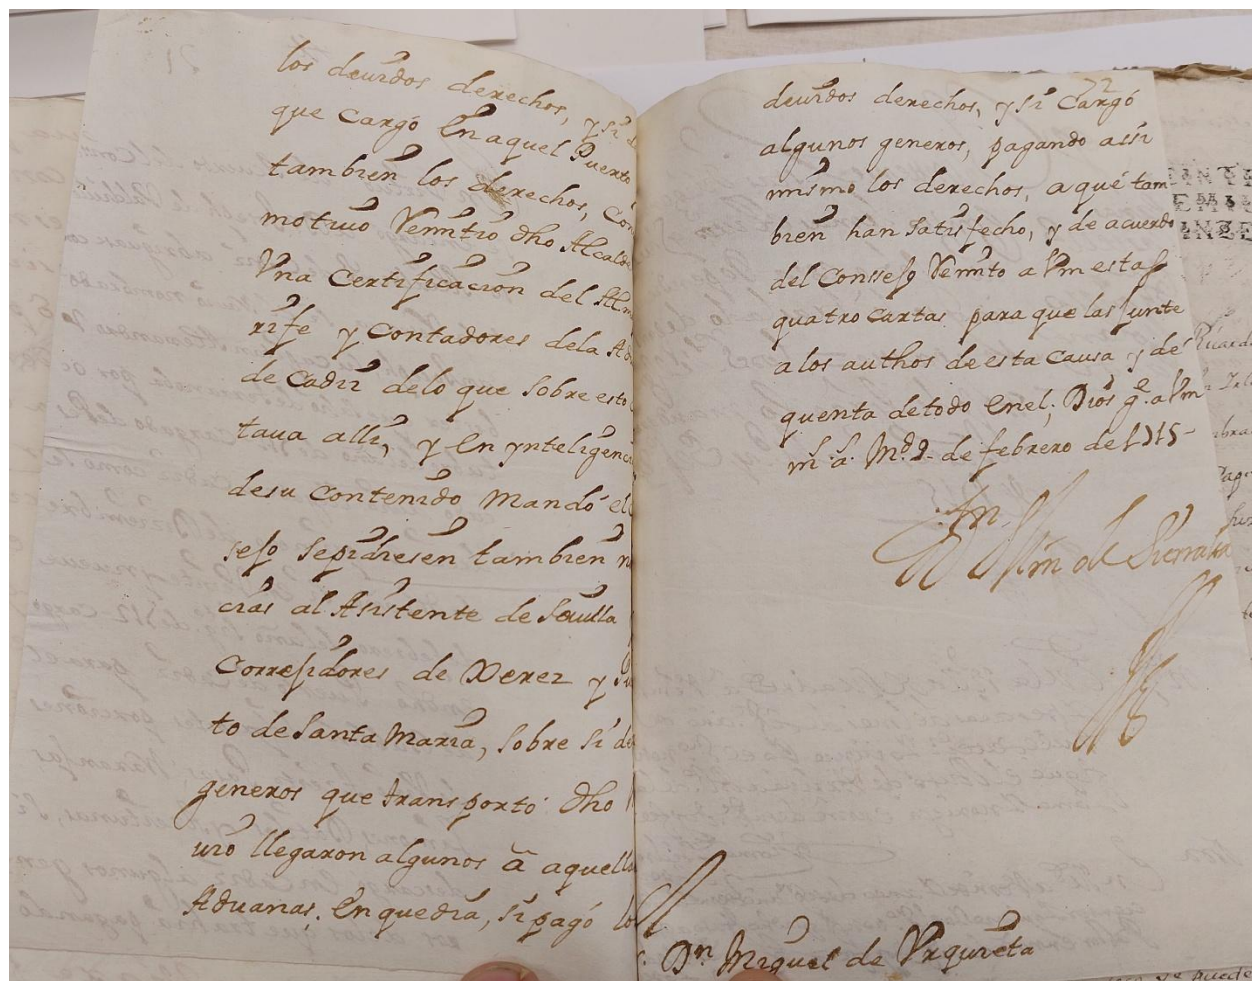 los deuidos derechos, y si
que cargó En aquel Puerto
tambien los derechos, con
motiuo Remitio dho Alcalde
Vna Certificacion del Alm
rife y contadores dela Ad
de Cadiz delo que sobre esto
taua alli, y En ynteligenci
desu contenido mandó el
sejo sepidiesen tambien n
cias al Asistente de Seuilla
Corregidores de Xerez y Pu
to de Santa Maria, sobre si de
generos que transporto dho
uio llegaron algunos â aquella
Aduanas, En que dia, si pagó lo
22
deuidos derechos, y si Cargó
algunos generos, pagando assi
mismo los derechos, a qué tam
bien han satisfecho, y de acuerdo
del Conssejo Remito a Vm estas
quatro cartas para que las junte
a los authos de esta Causa y dé
quenta de todo En el; Dios ge. a Vm
ms. as. Md. 9 de febrero de 1715
Dn Miguel de Vrquieta